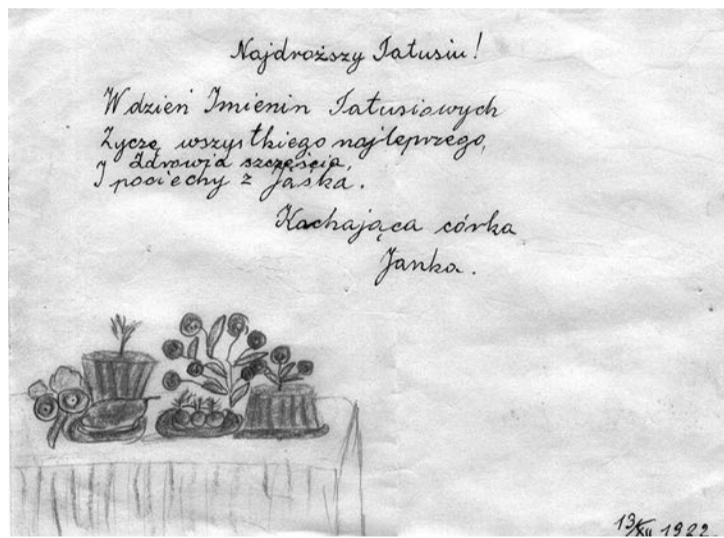 Najdroższy Tatusiu!
W dzień Imienin Tatusiowych
Życzę wszystkiego najleprzego,
Zdrowia szczęścia,
I pociechy z Jaśka.
Kochająca córka
Janka.
13/XII 1922.